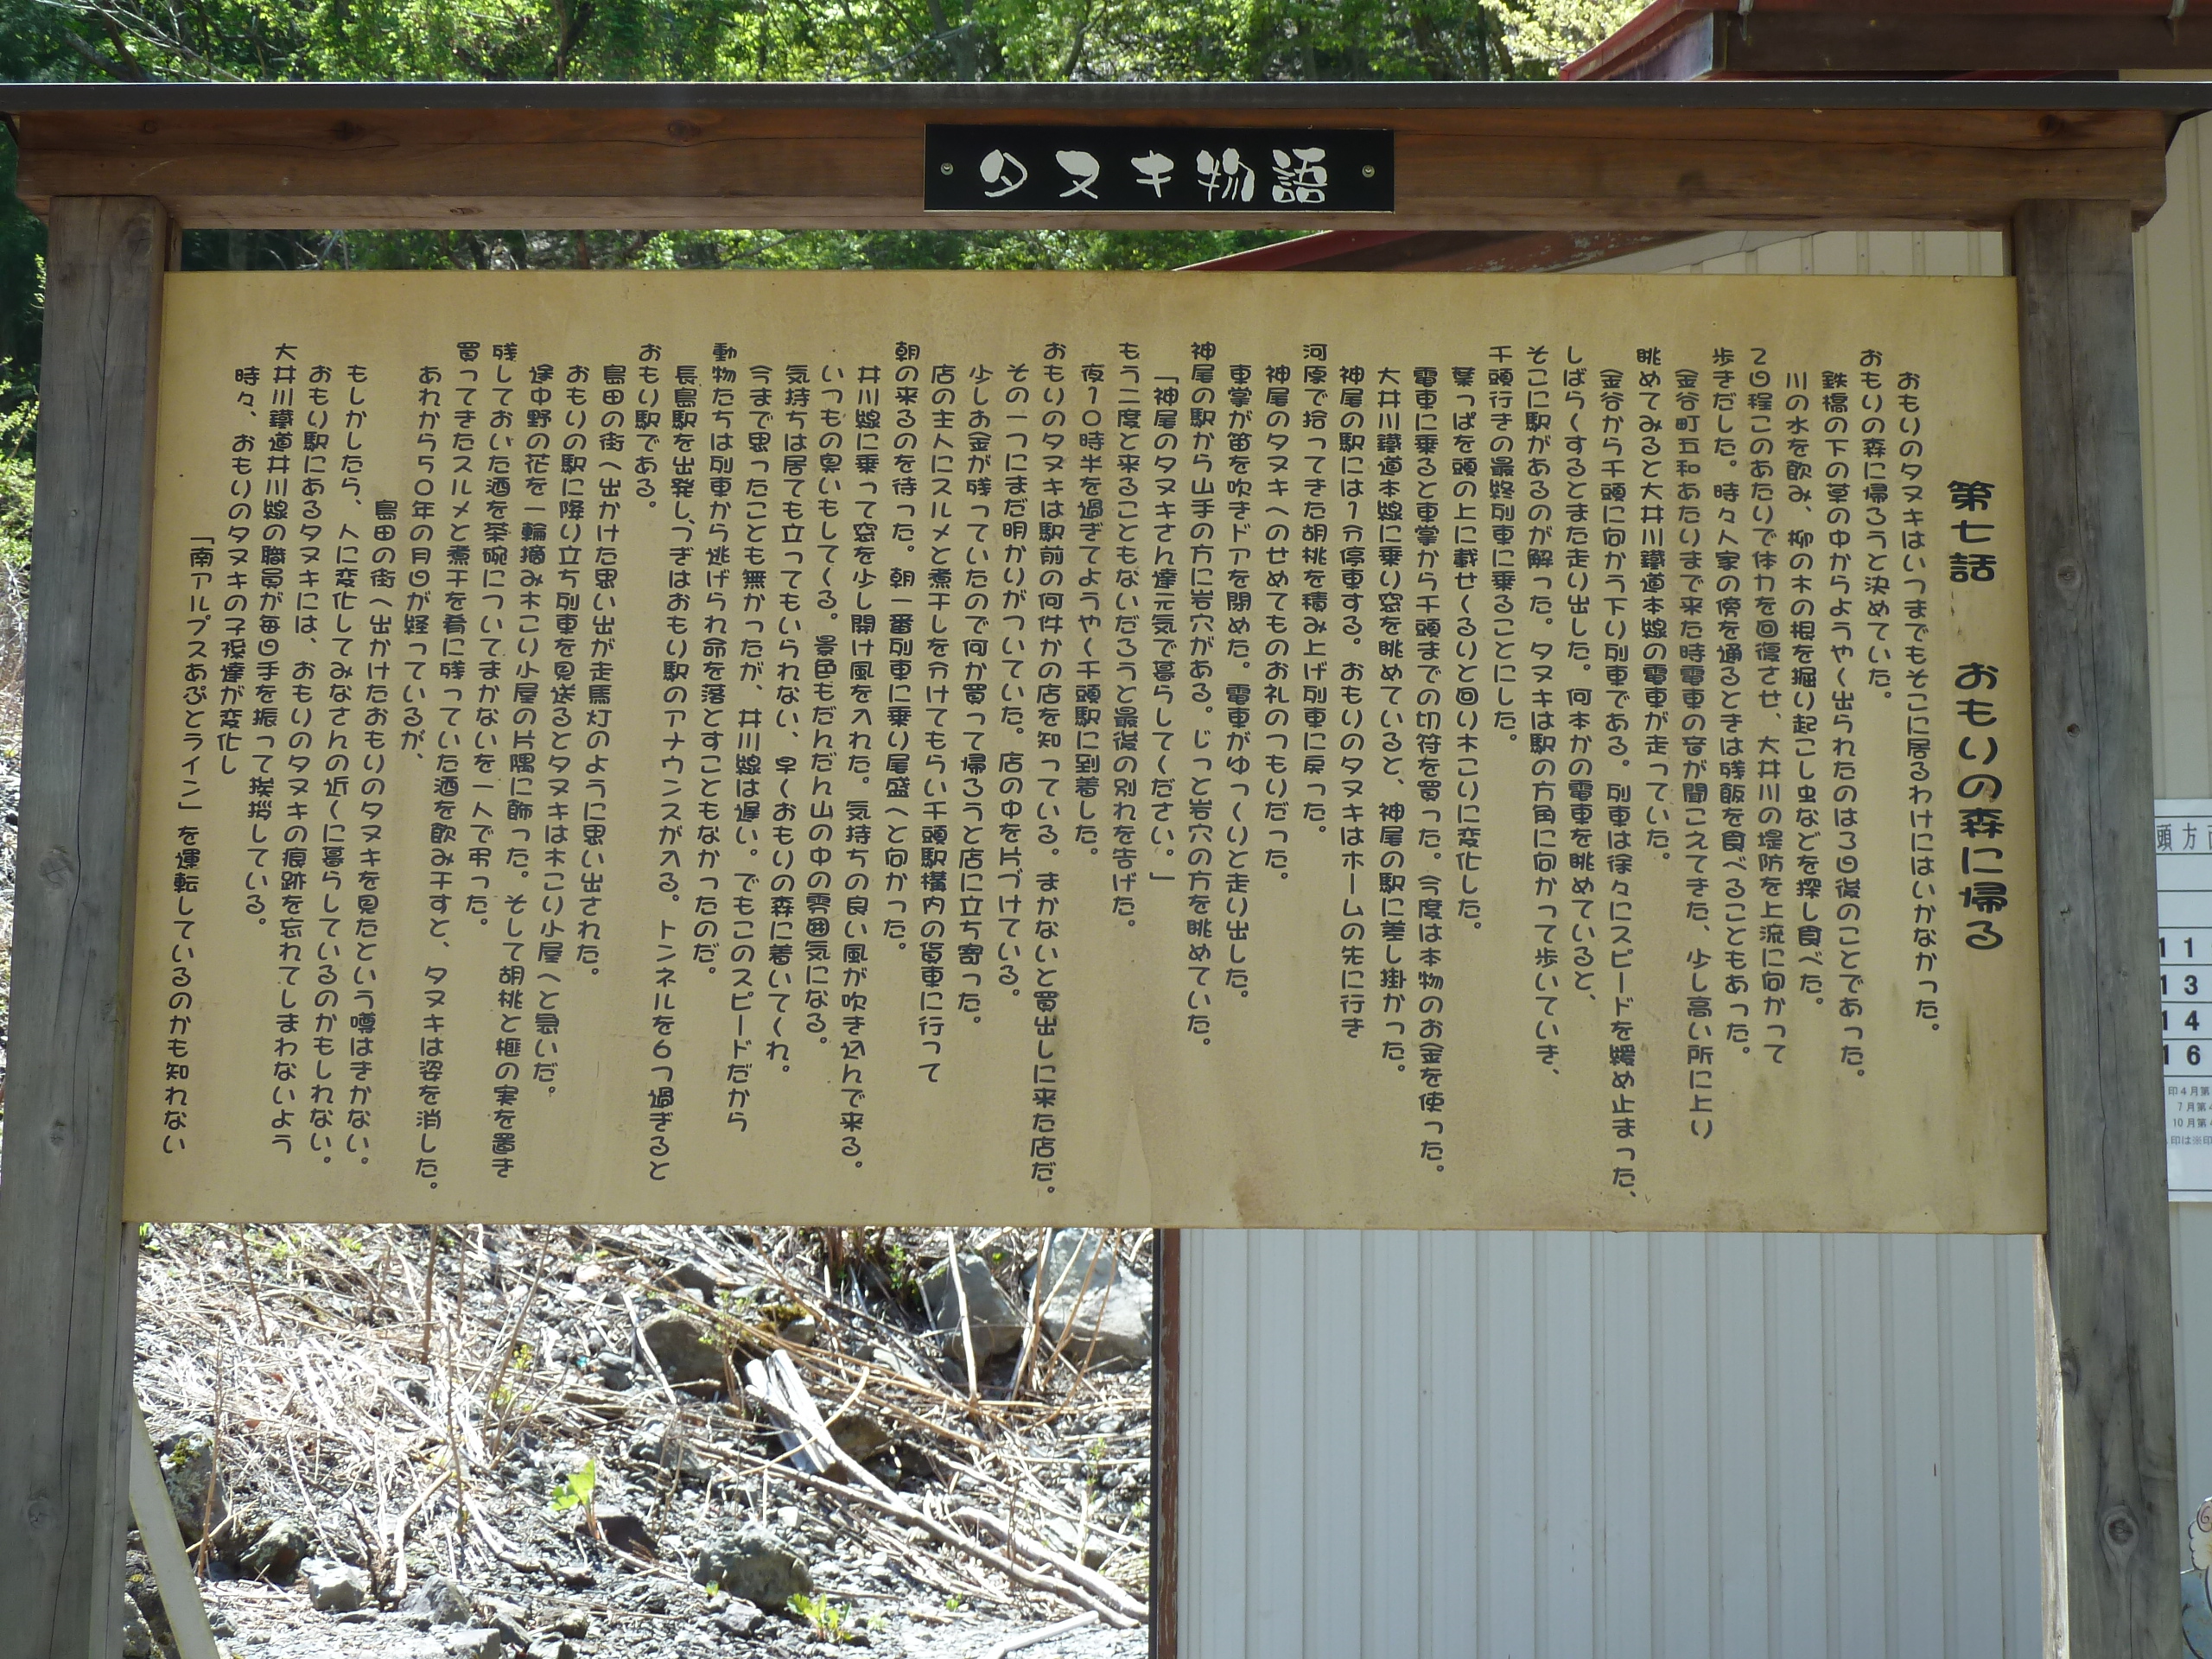 タヌキ物語
第七話　おもりの森に帰る
おもりのタヌキはいつまでもそこに居るわけにはいかなかった。
おもりの森に帰ろうと決めていた。
鉄橋の下の草の中からようやく出られたのは3日後のことであった。
川の水を飲み、柳の木の根を掘り起こし虫などを探し食べた。
2日程このあたりで体力を回復させ、大井川の堤防を上流に向かって
歩きだした。時々人家の傍を通るときは残飯を食べることもあった。
金谷町五和あたりまで来た時電車の音が聞こえてきた、少し高い所に上り
眺めてみると大井川鐵道本線の電車が走っていた。
金谷から千頭に向かう下り列車である。列車は徐々にスピードを緩め止まった、
しばらくするとまた走り出した。何本かの電車を眺めていると、
そこに駅があるのが解った。タヌキは駅の方角に向かって歩いていき、
千頭行きの最終列車に乗ることにした。
葉っぱを頭の上に載せくるりと回り木こりに変化した。
電車に乗ると車掌から千頭までの切符を買った。今度は本物のお金を使った。
大井川鐵道本線に乗り窓を眺めていると、神尾の駅に差し掛かった。
神尾の駅には1分停車する。おもりのタヌキはホームの先に行き
河原で拾ってきた胡桃を積み上げ列車に戻った。
神尾のタヌキへのせめてものお礼のつもりだった。
車掌が笛を吹きドアを閉めた。電車がゆっくりと走り出した。
神尾の駅から山手の方に岩穴がある。じっと岩穴の方を眺めていた。
「神尾のタヌキさん達元気で暮らしてください。」
もう二度と来ることもないだろうと最後の別れを告げた。
夜10時半を過ぎてようやく千頭駅に到着した。
おもりのタヌキは駅前の何件かの店を知っている。まかないと買出しに来た店だ。
その一つにまだ明かりがついていた。店の中を片づけている。
少しお金が残っていたので何か買って帰ろうと店に立ち寄った。
店の主人にスルメと煮干しを分けてもらい千頭駅構内の貨車に行って
朝の来るのを待った。朝一番列車に乗り尾盛へと向かった。
井川線に乗って窓を少し開け風を入れた。気持ちの良い風が吹き込んで来る。
いつもの臭いもしてくる。景色もだんだん山の中の雰囲気になる。
気持ちは居ても立ってもいられない、早くおもりの森に着いてくれ。
今まで思ったことも無かったが、井川線は遅い。でもこのスピードだから
動物たちは列車から逃げられ命を落とすこともなかったのだ。
長島駅を出発し、つぎはおもり駅のアナウンスが入る。トンネルを6つ過ぎると
おもり駅である。
島田の街へ出かけた思い出が走馬灯のように思い出された。
おもりの駅に降り立ち列車を見送るとタヌキは木こり小屋へと急いだ。
途中野の花を一輪摘み木こり小屋の片隅に飾った。そして胡桃と榧の実を置き
残しておいた酒を茶碗についてまかないを一人で弔った。
買ってきたスルメと煮干を肴に残っていた酒を飲み干すと、タヌキは姿を消した。
あれから50年の月日が経っているが、
島田の街へ出かけたおもりのタヌキを見たという噂はきかない。
もしかしたら、人に変化してみなさんの近くに暮らしているのかもしれない。
おもり駅にあるタヌキには、おもりのタヌキの痕跡を忘れてしまわないよう
大井川鐵道井川線の職員が毎日手を振って挨拶している。
時々、おもりのタヌキの子孫達が変化し
「南アルプスあぷとライン」を運転しているのかも知れない
頭方面
11
13
14
16